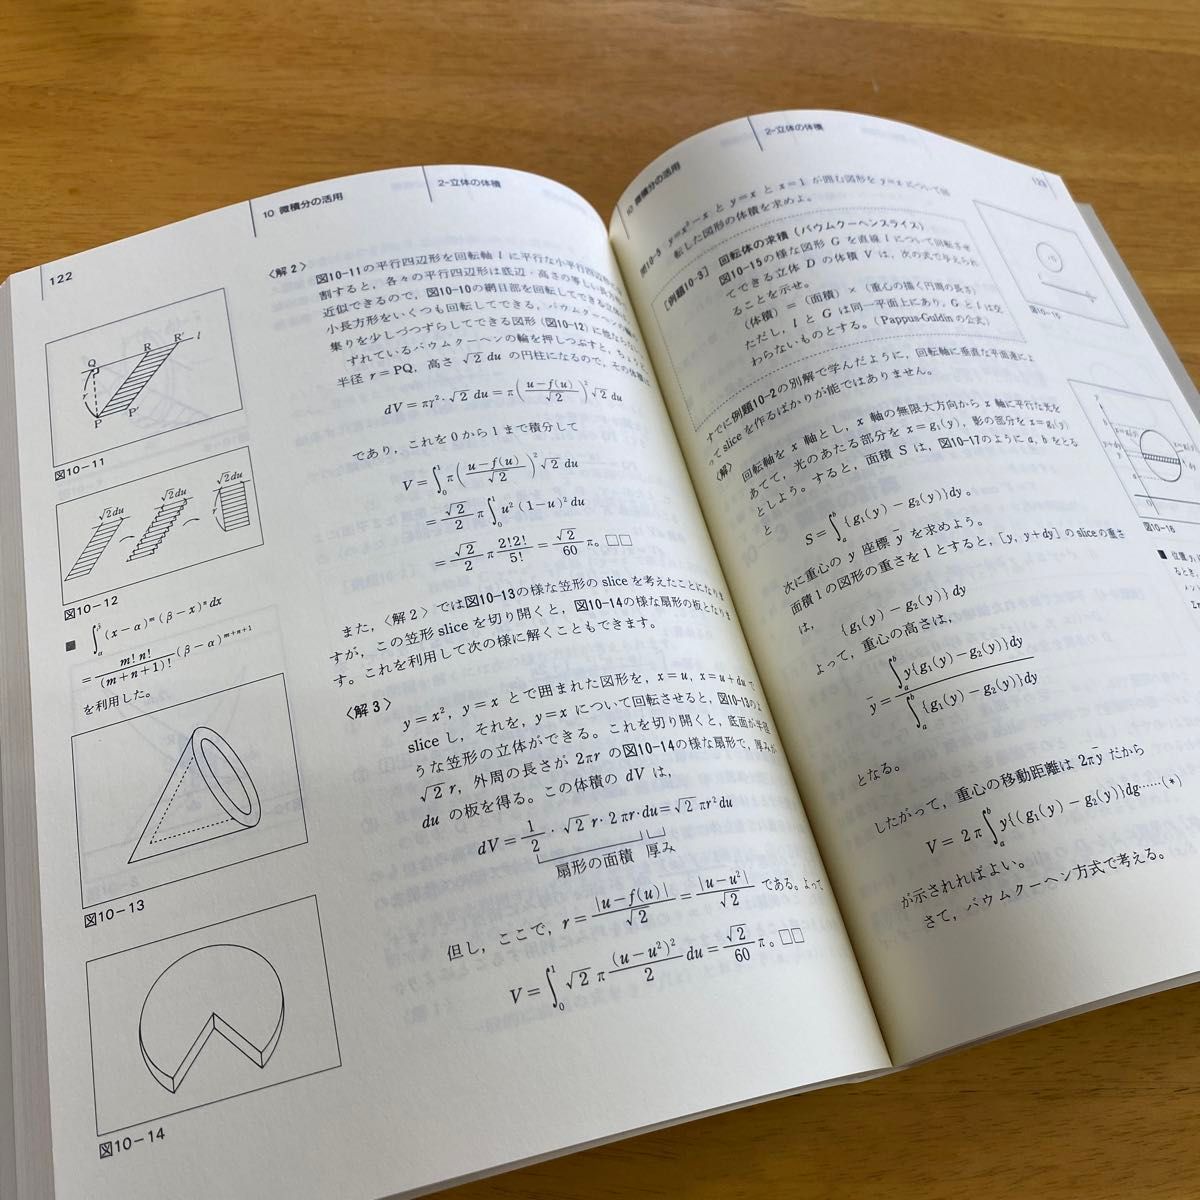 10 微積分の活用
2-立体の体積
122
〈解2〉
図10-11の平行四辺形を回転軸 l に平行な小平行四辺形
割すると，各々の平行四辺形は底辺・高さの等しい
近似できるので，図10-10の網目部を回転してできる立体
小長方形をいくつも回転してできる，バウムクーヘンの輪
集りを少しづつずらしてできる図形(図10-12)に他ならない。
ずれているバウムクーヘンの輪を押しつぶすと，ちょう
半径 r=PQ，高さ √2 du の円柱になるので，その体積は
dV=πr²·√2 du=π((u-f(u))/√2)²√2 du
であり，これを0から1まで積分して
V=∫₀¹π((u-f(u))/√2)²√2 du
=√2/2 π∫₀¹u²(1-u)²du
=√2/2 π 2!2!/5! = √2/60 π。□□
また，〈解2〉では図10-13の様な笠形のsliceを考えたことになりま
すが，この笠形sliceを切り開くと，図10-14の様な扇形の板となりま
す。これを利用して次の様に解くこともできます。
〈解3〉
y=x²，y=x とで囲まれた図形を，x=u，x=u+du で
sliceし，それを，y=x について回転させると，図10-13のよ
うな笠形の立体ができる。これを切り開くと，底面が半径
√2 r，外周の長さが 2πr の図10-14の様な扇形で，厚みが
du の板を得る。この体積の dV は，
dV=1/2·√2 r·2πr·du=√2 πr²du
扇形の面積 厚み
但し，ここで，r=|u-f(u)|/√2=|u-u²|/√2 である。よって
V=∫₀¹√2 π (u-u²)²/2 du=√2/60 π。□□
Q
R
R'
l
r
P
P'
図10-11
√2du
√2du
√2du
r
図10-12
■ ∫(x-α)ᵐ(β-x)ⁿdx
=m!n!/(m+n+1)! (β-α)ᵐ⁺ⁿ⁺¹
を利用した。
図10-13
図10-14
10 微積分の活用
2-立体の体積
123
問10-5 y=x²-x と y=x と x=1 が囲む図形を y=x について回
転した図形の体積を求めよ。
[例題10-3] 回転体の求積（バウムクーヘンスライス）
図10-15の様な図形 G を直線 l について回転させ
てできる立体 D の体積 V は，次の式で与えられ
ることを示せ。
（体積）＝（面積）×（重心の描く円周の長さ）
ただし，l と G は同一平面上にあり，G と l は交
わらないものとする。（Pappus-Guldinの公式）
すでに例題10-2の別解で学んだように，回転軸に垂直な平面達によ
ってsliceを作るばかりが能ではありません。
〈解〉
回転軸を x 軸とし，x 軸の無限大方向から x 軸に平行な光を
あてて，光のあたる部分を x=g₁(y)，影の部分を x=g₂(y)
としよう。すると，面積 S は，図10-17のように a, b をとる
と
S=∫ₐᵇ{g₁(y)-g₂(y)}dy。
次に重心の y 座標 ȳ を求めよう。
面積1の図形の重さを1とすると，[y, y+dy] のsliceの重さ
は，
{g₁(y)-g₂(y)}dy
よって，重心の高さは，
ȳ=∫ₐᵇy{g₁(y)-g₂(y)}dy/∫ₐᵇ{g₁(y)-g₂(y)}dy
となる。
したがって，重心の移動距離は 2πȳ だから
V=2π∫ₐᵇy{(g₁(y)-g₂(y)}dg……(*)
が示されればよい。
さて，バウムクーヘン方式で考える。
図10-15
図10-16